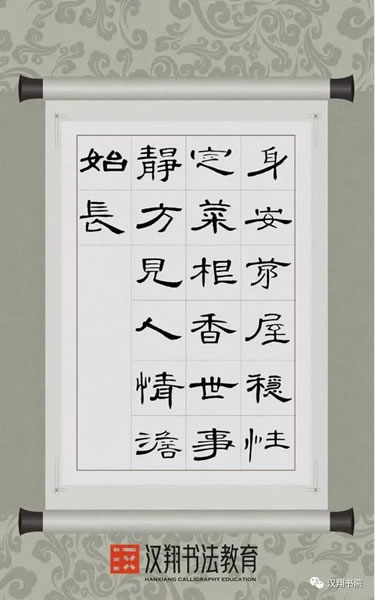 身安茅屋穩性
定菜根香世事
靜方見人情澹
始長
汉翔书法教育
HANXIANG CALLIGRAPHY EDUCATION
汉翔书院